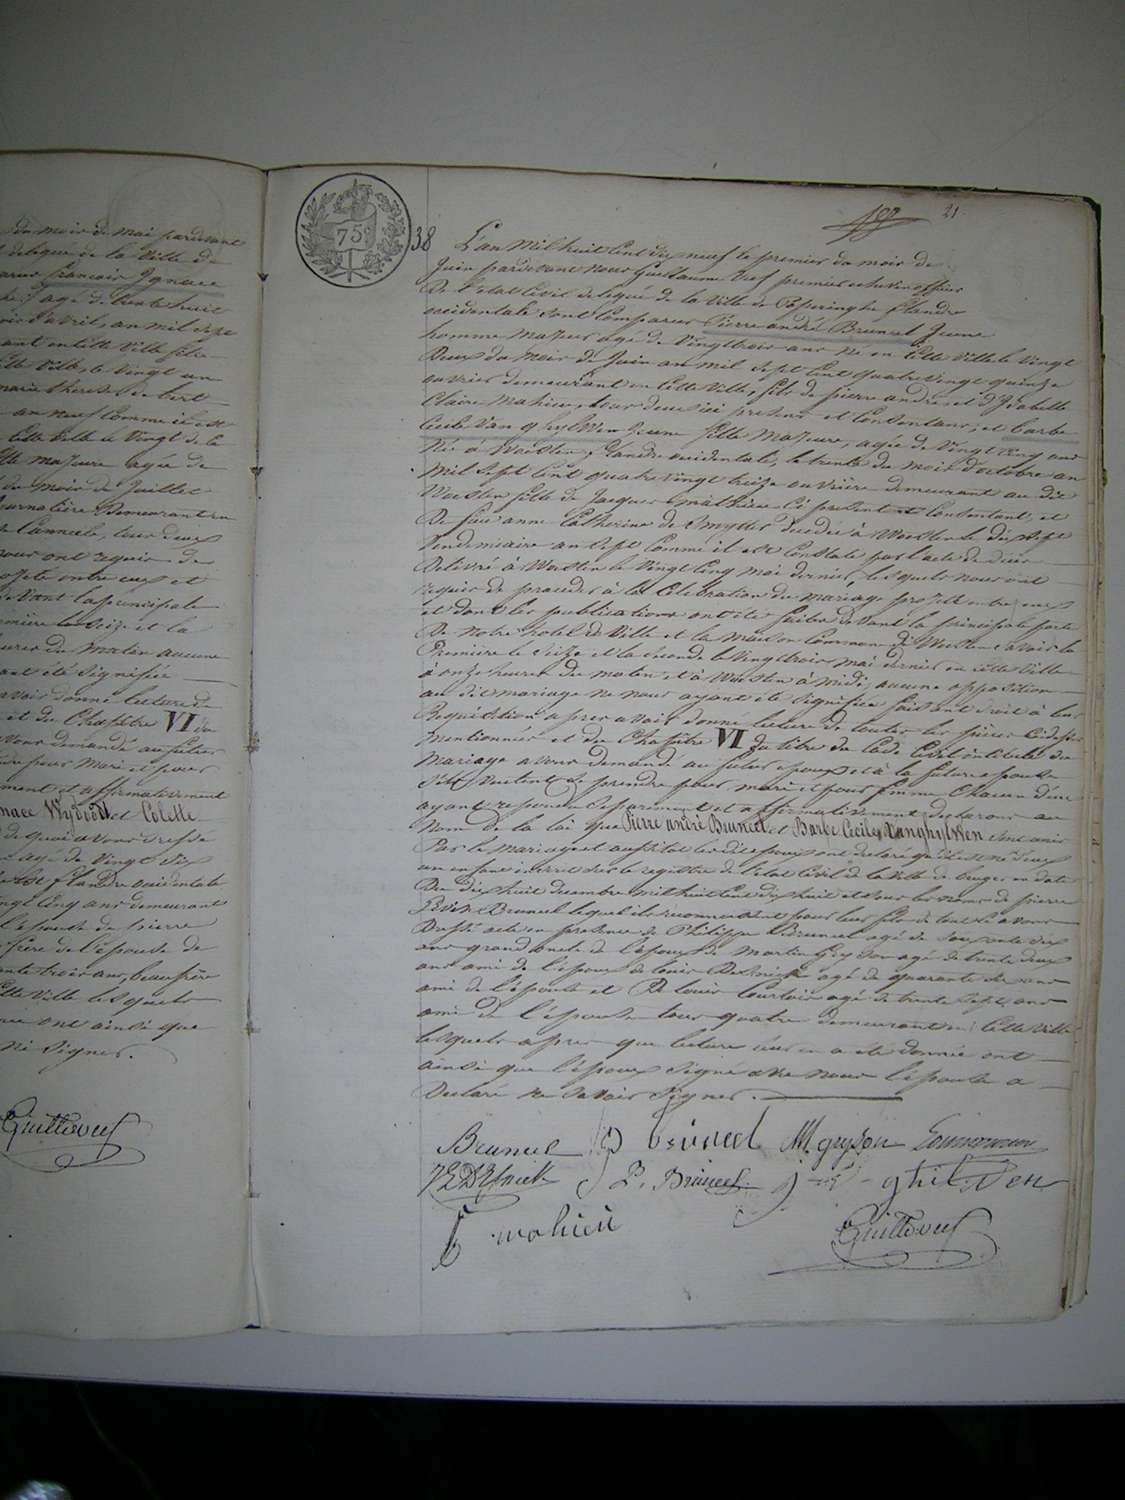 du mois de mai pardevant
délégué de la Ville de
François Ignace
agé de trente huit
d'avril, an mil sept
en cette Ville fils
Ville le Vingt un
marie therese de bert
an neuf comme il est
cette Ville le Vingt de ce
fille majeure agée de
du mois de Juillet
Journaliere demeurant en
tous deux
nous ont requis de
projeté entre eux et
devant la principale
première le Seize et la
heures du matin aucune
ait été signifiée
avoir donné lecture de
et du Chapitre VI du
avons demandé au futur
pour mari et pour
et affirmativement
et Colette
de quoi avons dressé
agé de Vingt six
flandre occidentale
cinq ans demeurant
l'epouse de pierre
frère de l'épouse de
trois ans, beau frère
cette Ville lesquels
ont ainsi que
signer.
38
75c
21
L'an mil huit cent dix neuf le premier du mois de
Juin pardevant nous Guillaume premier echevin officier
De l'etat Civil délegué de la Ville de Poperinghe flandre
occidentale sont comparus Pierre andré Bruneel Jeune
homme majeur agé de Vingt trois ans né en cette Ville le Vingt
Deux du mois de Juin an mil sept cent quatre vingt quinze
ouvrier demeurant en cette Ville, fils de pierre andré et d'Isabelle
Claire Mahieu, tous deux ici présens et consentans, et Barbe
Cecile Van ghylwen Jeune fille majeure, agée de Vingt cinq ans
Née à Woesten flandre occidentale, le trente du mois d'octobre an
mil sept cent quatre vingt treize ouvrière demeurant au dit
Woesten fille de Jacques Mathieu ici présent et consentant, et
De feue anne Catherine de Smytter decedée à Woesten le dix sept
Vendemiaire an sept comme il est constaté par l'acte de décès
Delivré à Woesten le Vingt cinq mai dernier, lesquels nous ont
requis de proceder à la Celebration du mariage projeté entre eux
et dont les publications ont été faites devant la principale porte
De notre hotel de Ville et la maison Commune de Woesten savoir la
Première le Seize et la seconde le Vingt trois mai dernier en cette Ville
à onze heures du matin et à Woesten à midi, aucune opposition
au dit mariage ne nous ayant été signifiée faisant droit à leur
Requisition après avoir donné lecture de toutes les pièces Cidessus
mentionnées et du Chapitre VI du titre du Code Civil intitulé du
Mariage avons demandé au futur epoux et à la future epouse
S'ils veulent se prendre pour mari et pour femme Chacun d'eux
ayant repondu séparément et affirmativement declarons au
Nom de la loi que Pierre andré Bruneel et Barbe Cecile Vanghylwen sont unis
Par le mariage et aussitôt les dits epoux ont declaré qu'il est né d'eux
un enfant inscrit sur le registre de l'etat Civil de la Ville de bruges en date
Du dix huit decembre mil huit cent dix huit et sous les noms de pierre
Bruneel lequel ils reconnoissent pour leur fils de tout ce avons
Dressé acte en presence de Philippe Bruneel agé de soixante dix
ans grand oncle de l'epoux de Martin Gryson agé de trente deux
ans ami de l'epoux de louis agé de quarante six ans
ami de l'épouse et De louis Courtois agé de trente sept ans
ami de l'épouse tous quatre demeurant en Cette Ville
lesquels après que lecture leur en a été donnée ont
ainsi que l'époux signé avec nous l'épouse a
Declaré ne savoir signer.
Bruneel Bruneel M gryson
P. Bruneel ghilwen
mahieu